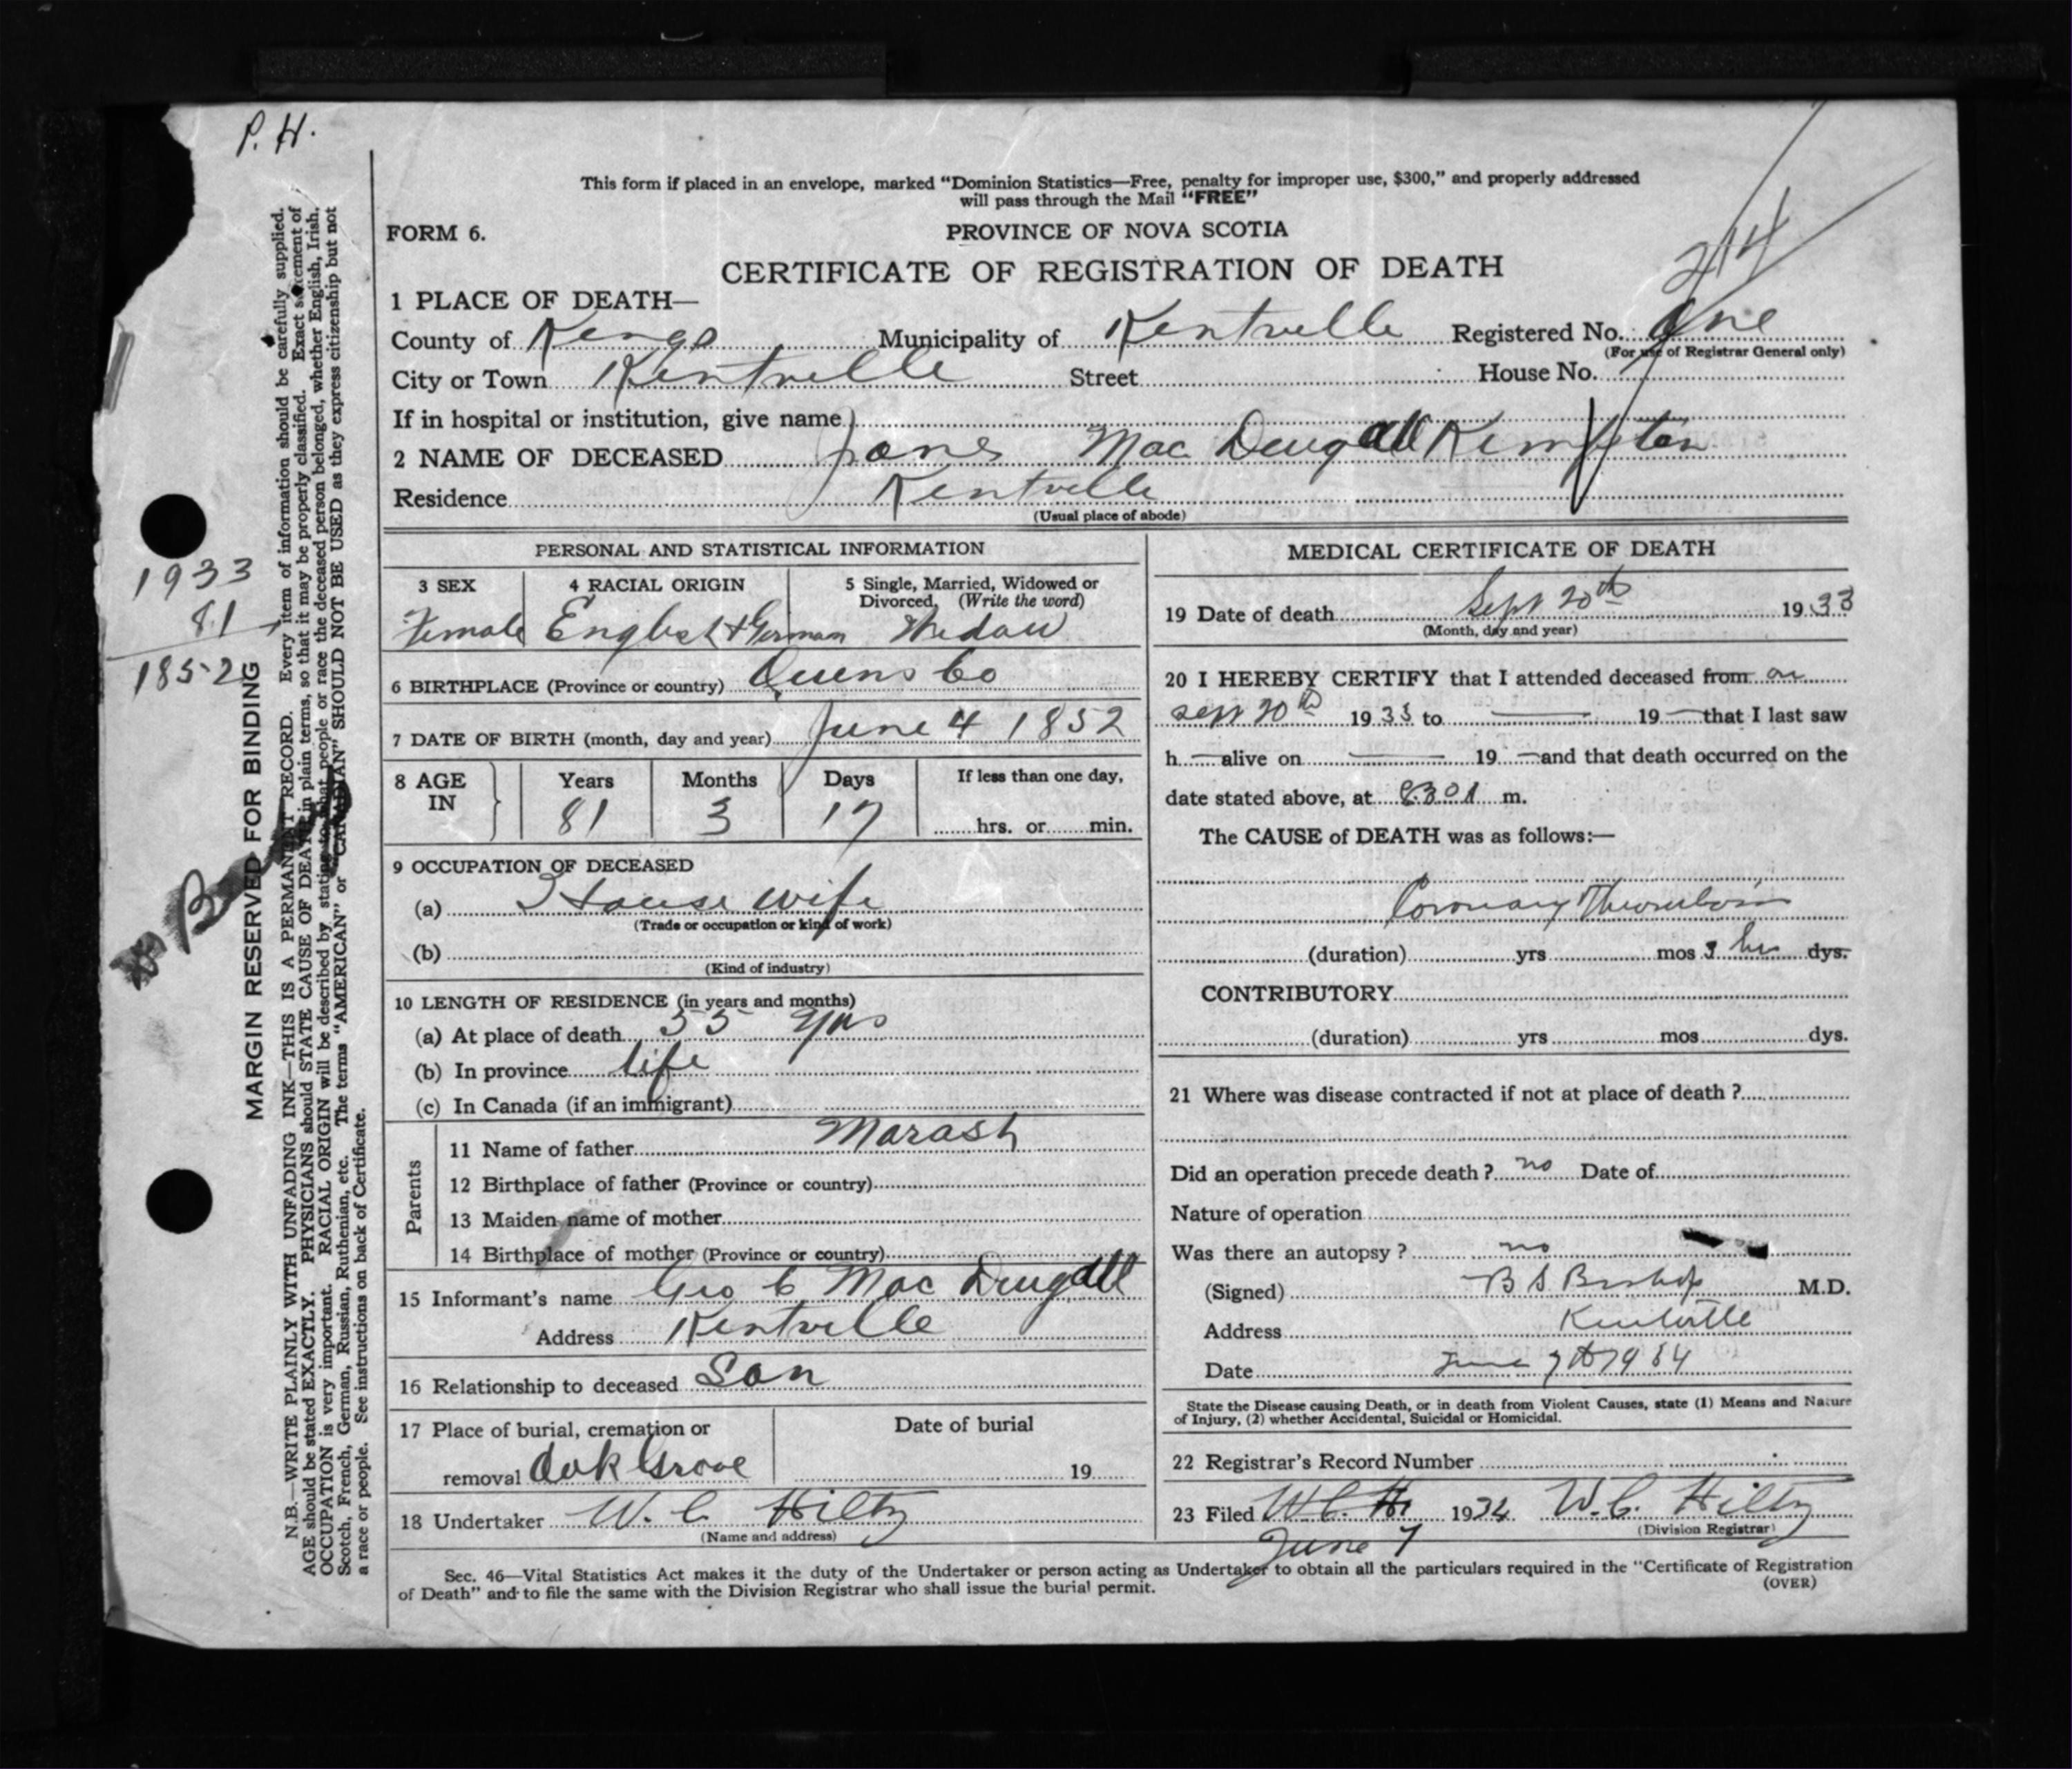 P. H.
This form if placed in an envelope, marked “Dominion Statistics—Free, penalty for improper use, $300,” and properly addressed
will pass through the Mail “FREE”
FORM 6.
PROVINCE OF NOVA SCOTIA
214
CERTIFICATE OF REGISTRATION OF DEATH
1 PLACE OF DEATH—
County of Kings Municipality of Kentville Registered No. One
(For use of Registrar General only)
City or Town Kentville Street House No.
If in hospital or institution, give name
2 NAME OF DECEASED Jane Mac Dougall Kempton
Residence Kentville
(Usual place of abode)
PERSONAL AND STATISTICAL INFORMATION
3 SEX 4 RACIAL ORIGIN 5 Single, Married, Widowed or
Divorced. (Write the word)
Female English + German Widow
6 BIRTHPLACE (Province or country) Queens Co
7 DATE OF BIRTH (month, day and year) June 4 1852
8 AGE IN Years Months Days If less than one day,
81 3 17 hrs. or min.
9 OCCUPATION OF DECEASED
(a) House wife
(Trade or occupation or kind of work)
(b)
(Kind of industry)
10 LENGTH OF RESIDENCE (in years and months)
(a) At place of death 55 yrs
(b) In province life
(c) In Canada (if an immigrant)
Parents
11 Name of father Marash
12 Birthplace of father (Province or country)
13 Maiden name of mother
14 Birthplace of mother (Province or country)
15 Informant's name Geo C Mac Dougall
Address Kentville
16 Relationship to deceased Son
17 Place of burial, cremation or Date of burial
removal Oak Grove 19
18 Undertaker W. C. Hiltz
(Name and address)
MEDICAL CERTIFICATE OF DEATH
19 Date of death Sept 20th 1933
(Month, day and year)
20 I HEREBY CERTIFY that I attended deceased from on
Sept 20th 1933 to — 19 — that I last saw
h — alive on — 19 — and that death occurred on the
date stated above, at m.
The CAUSE of DEATH was as follows:—
Coronary Thrombosis
(duration) yrs mos 3 hrs dys.
CONTRIBUTORY
(duration) yrs mos dys.
21 Where was disease contracted if not at place of death ?
Did an operation precede death ? no Date of
Nature of operation
Was there an autopsy ? no
(Signed) B S Bishop M.D.
Address Kentville
Date June 7th 1934
State the Disease causing Death, or in death from Violent Causes, state (1) Means and Nature
of Injury, (2) whether Accidental, Suicidal or Homicidal.
22 Registrar's Record Number
23 Filed W.C. Hi 1934 W. C. Hiltz
June 7
(Division Registrar)
Sec. 46—Vital Statistics Act makes it the duty of the Undertaker or person acting as Undertaker to obtain all the particulars required in the “Certificate of Registration
of Death” and to file the same with the Division Registrar who shall issue the burial permit.
(OVER)
1933
81
1852
MARGIN RESERVED FOR BINDING
N.B.—WRITE PLAINLY WITH UNFADING INK—THIS IS A PERMANENT RECORD. Every item of information should be carefully supplied.
AGE should be stated EXACTLY. PHYSICIANS should STATE CAUSE OF DEATH in plain terms, so that it may be properly classified. Exact statement of
OCCUPATION is very important. RACIAL ORIGIN will be described by stating to what people or race the deceased person belonged, whether English, Irish,
Scotch, French, German, Russian, Ruthenian, etc. The terms “AMERICAN” or “CANADIAN” SHOULD NOT BE USED as they express citizenship but not
a race or people. See instructions on back of Certificate.